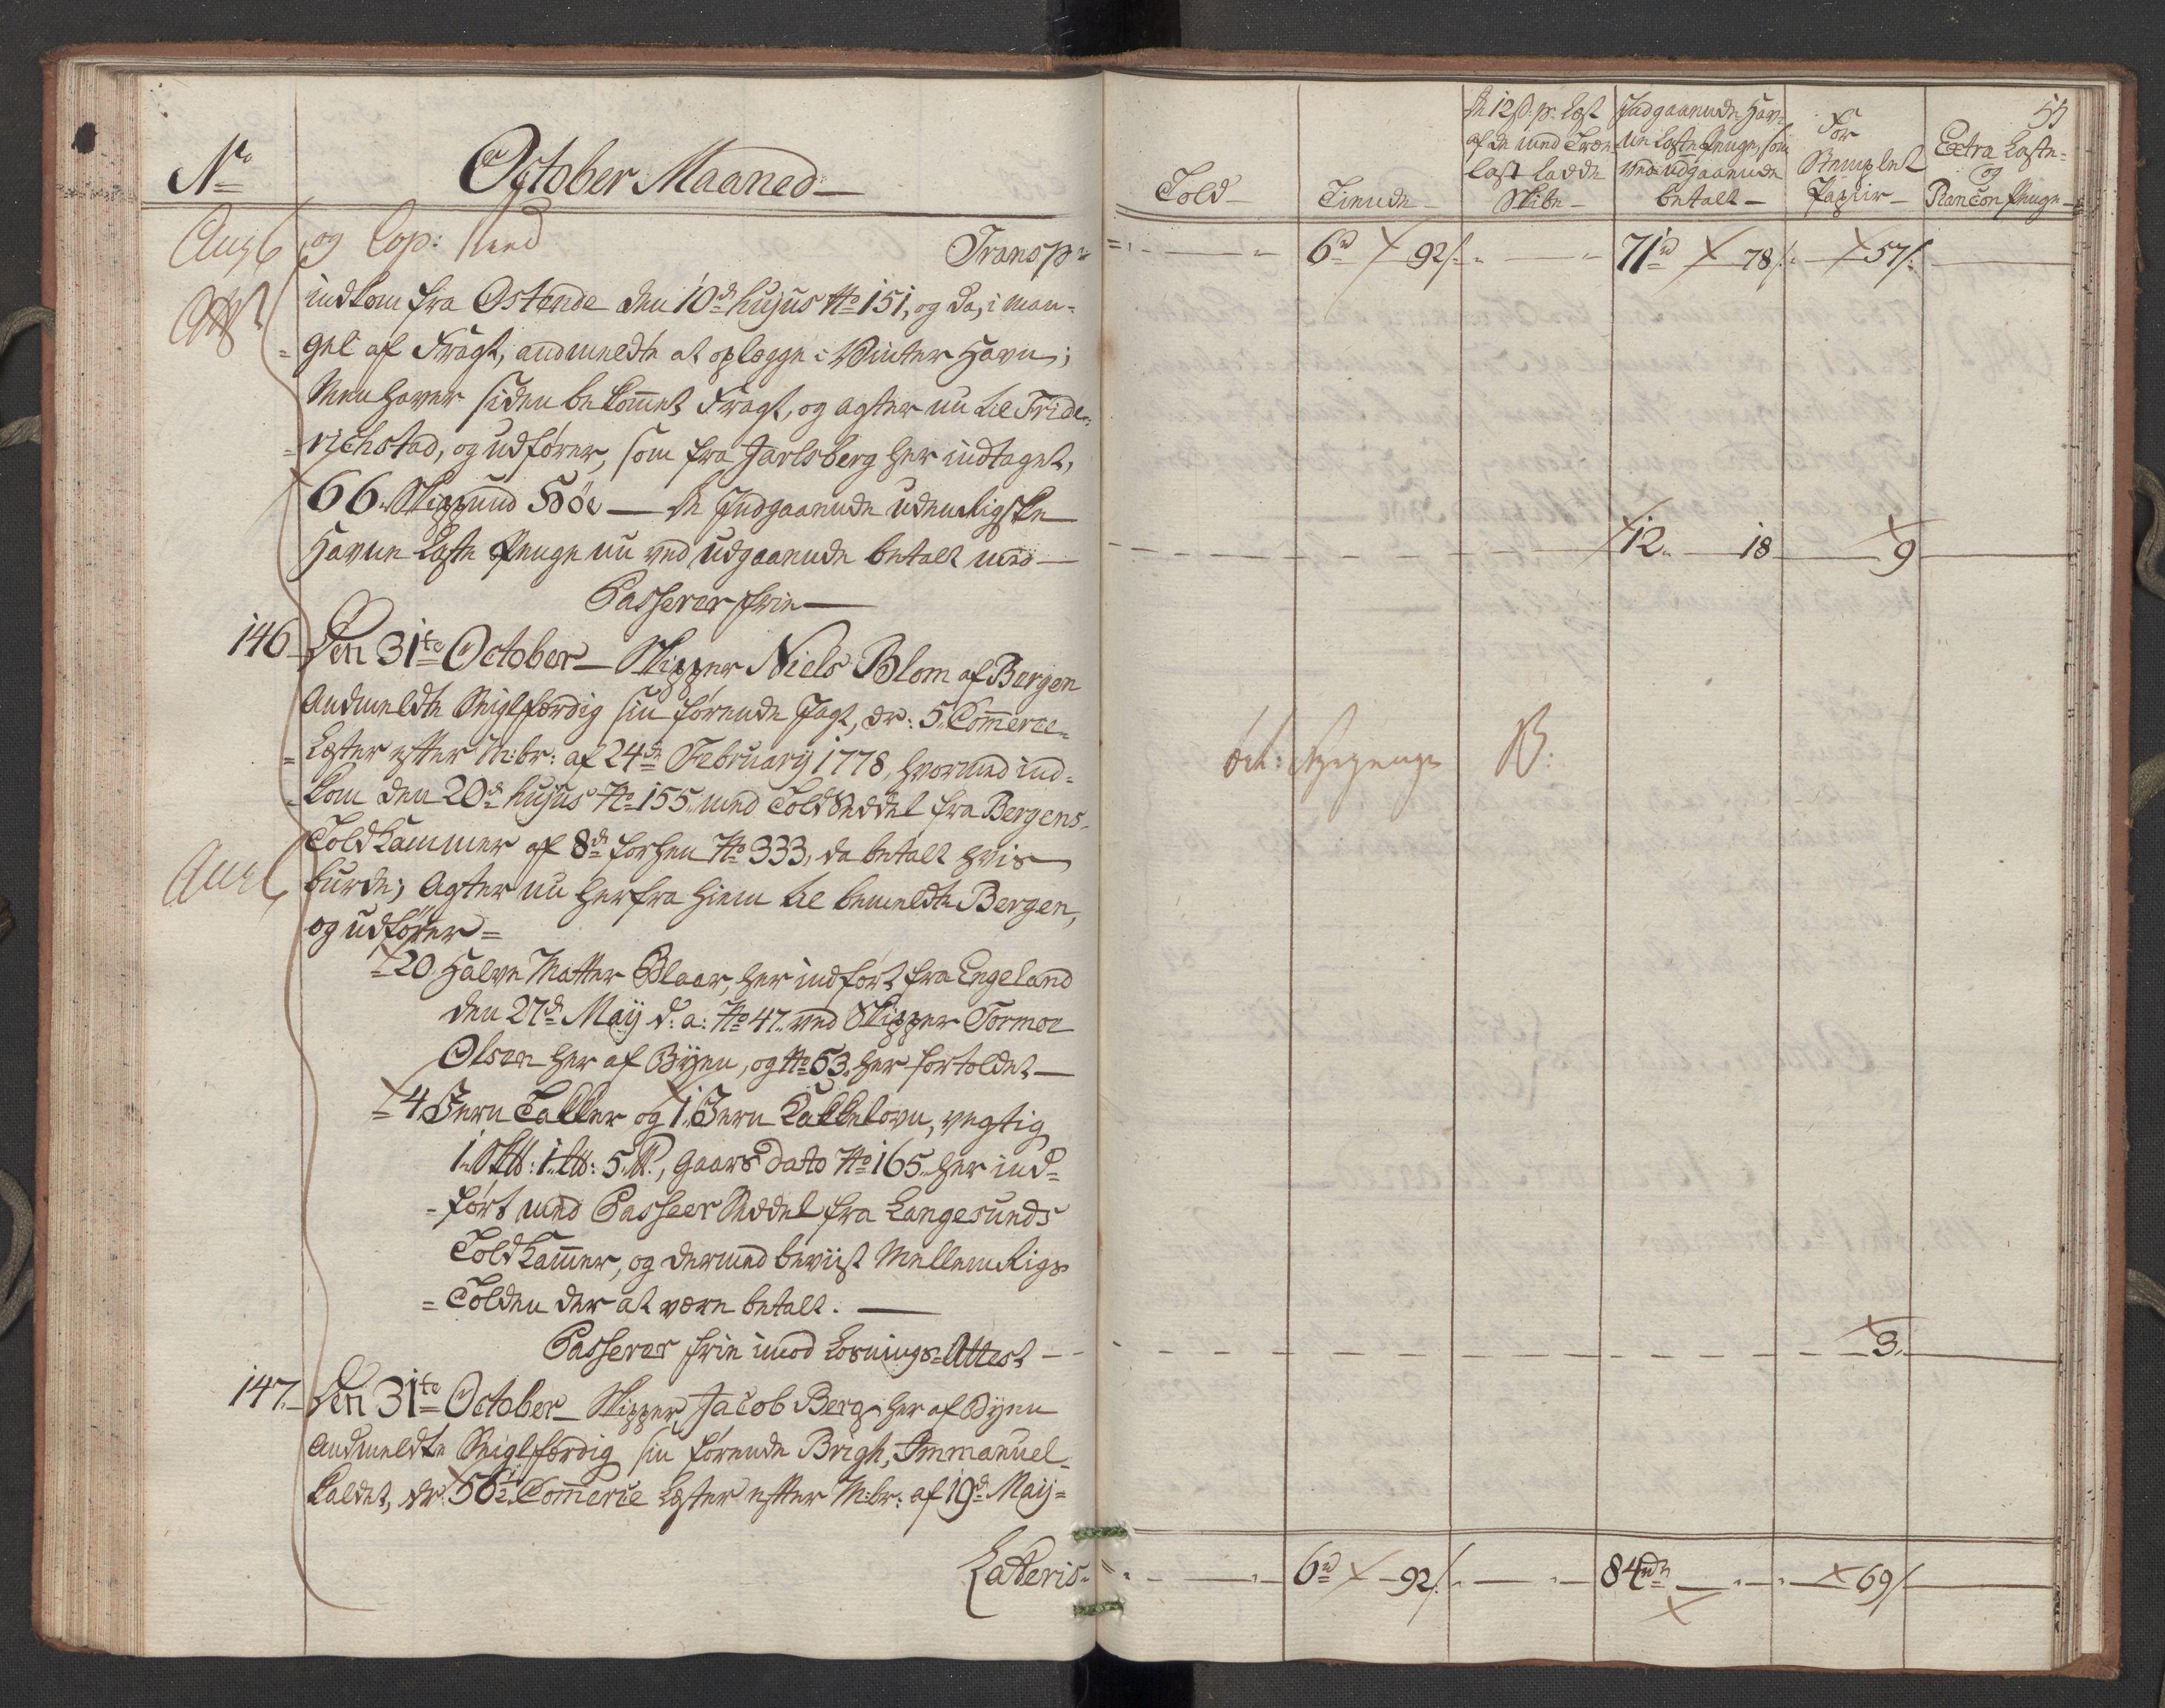 No
October Maaned
og Cop: med
Transp:
indkom fra Ostende den 10de hujus No 151, og da, i man-
-gel af Fragt, andmeldte at oplegge i Winter Havn;
Men haver siden bekommet Fragt, og agter nu til Fride-
-richstad, og udfører, som fra Jarlsberg her indtaget,
66 Skippund Höe — de Indgaaende udenrigske
Havne Laste Penge nu ved udgaaende betalt med —
Passerer frie —
146 Den 31te October — Skipper Niels Blom af Bergen
Andmeldte Seiglfærdig sin førende Jagt, dr: 5 Commerce
-Lester efter M:br: af 24de February 1778, hvormed ind-
-kom den 20de hujus No 155 med Told Seddel fra Bergens
Told Kammer af 8de forhen No 333, da betalt hvis
burde; Agter nu herfra hiem til bemeldte Bergen,
og udfører =
20 Halve Matter Blaar, her indført fra Engeland
den 27de Maij d: a: No 47 med Skipper Tormoe
Olsen her af Byen, og No 53 her fortoldet —
4 Jern Taller og 1 Jern Kakkelovn, vegtig
1 Sk℔: 1 L℔: 5 ℔, Gaars Dato No 165 her ind-
-ført med Passeer Seddel fra Langesunds
Told Kammer, og dermed beviist Mellemrigs
-Tolden der at være betalt. —
Passerer frie imod Losnings-Attest —
147 Den 31te October — Skipper Jacob Berg her af Byen
Andmeldte Seiglfærdig sin førende Brigh, Immanuel
kaldet, dr: 56½ Commerce Lester efter M:br: af 19de Maij
Lateris
55
Told
Tiende
de 12 s: pr: Lest af de med Træe last ladde Skibe
Indgaaende Havne Laste Penge, som ved udgaaende betalt
For Stemplet Papiir
Extra Laste- og Rançon Penge
6rd 92s
71rd 78s
57s
12 18
9
3
6rd 92s
84rdr
69s